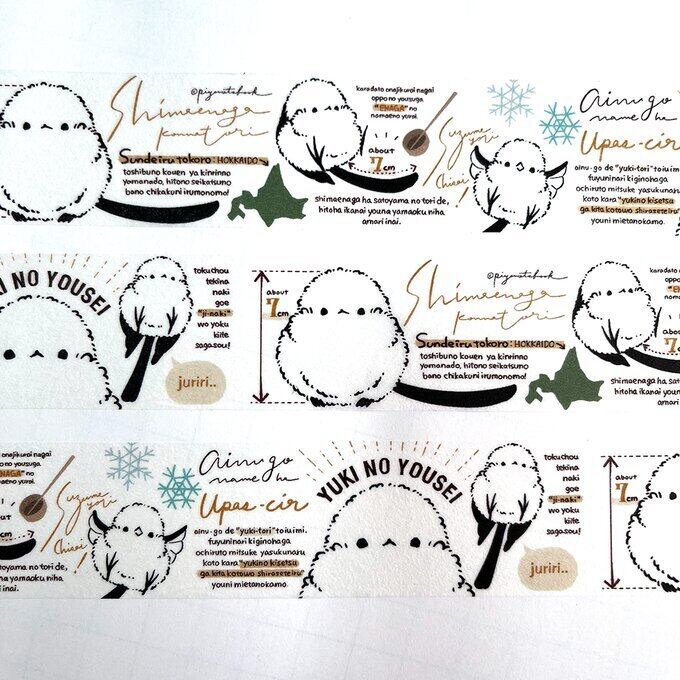 @piymatebook
Shimaenaga
konnatori
Sundeirutokoro: HOKKAIDO
toshibuno kouen ya kinrinno
yamanado, hitono seikatsuno
bano chikakuni irumonomo!
karadato onajikuroi nagai
oppo no yousuga
"ENAGA" no
nomaeno yurai.
about
7cm
shimaenaga ha satoyama no tori de,
hitoha ikanai youna yamaoku niha
amari inai.
Suzume
yori
Chiisai
Ainu go
name ha
Upas-cir
ainu-go de "yuki-tori"
fuyuninari kiginohaga
ochiruto mitsuke yasukunaru
koto kara "yukino kisetsu
ga kita kotowo shiraseteiru"
youni mietanokamo.
KI NO YOUSEI
tokuchou
tekina
naki
goe
"ji-naki"
wo yoku
kiite
sagasou!
juriri..
about
7cm
Shimaenaga
konnatori
@piymatebook
Sundeirutokoro: HOKKAIDO
toshibuno kouen ya kinrinno
yamanado, hitono seikatsuno
bano chikakuni irumonomo!
karadato ona
oppo no yousuga
"ENAGA"
nomaeno
about
7cm
shimaenaga ha satoyama
hitoha ikanai youna yam
amari inai.
onajikuroi nagai
no yousuga
"ENAGA" no
no yurai.
out
cm
toyama no tori de,
na yamaoku niha
ri inai.
Suzume
yori
Chiisai
Ainu go
name ha
Upas-cir
ainu-go de "yuki-tori" to iu imi.
fuyuninari kiginohaga
ochiruto mitsuke yasukunaru
koto kara "yukino kisetsu
ga kita kotowo shiraseteiru"
youni mietanokamo.
YUKI NO YOUSEI
tokuchou
tekina
naki
goe
"ji-naki"
wo yoku
kiite
sagasou!
juriri..
about
7cm